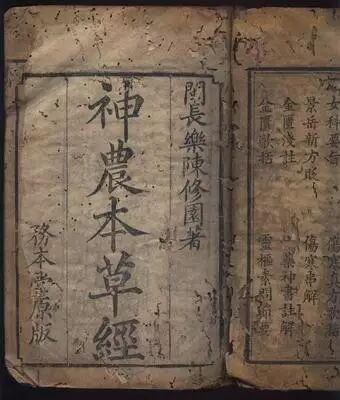 女科要旨 傷寒方歌括
景岳新方 傷寒串解
金匱淺註 神書註解
金匱歌括 靈樞素問節要
閩長樂陳修園著
神農本草經
務本堂原版